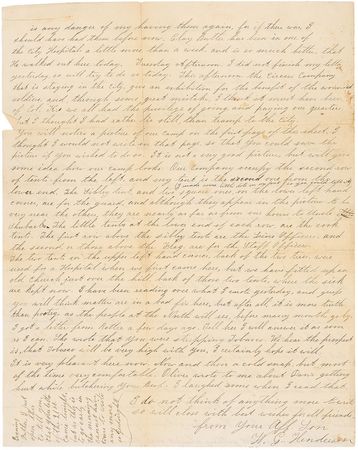 is any danger of my having them again, for if there was I
should have had them before now. Clay Butler has been in one of
the City Hospitals a little more than a week and is so much better that
He walked out here today. Tuesday Afternoon. I did not finish my letter
yesterday so will try to do so today. This afternoon the Circus Company
that is staying in the city, give an exhibition for the benefit of the wounded
soldiers, and through some great mistake, I think it must have been
of Lt. Ko we all had the privilege of going and paying one quarter.
but I thought I had rather lie still than tramp to the city
You will notice a picture of our camp on the first page of this sheet. I
thought I would not write on that page so that you could save the
picture if you wished to do so. It is not a very good picture but will give
some idea how our camp looks. Our Company occupy the second row
of tents from the left and our tent is the second one from the
lower end. The Sibley tent and two square ones, on the lower left hand
corner, are for the guard, and although they appear in the picture to be
very near the other, they are nearly as far as from our house to Uncle
The little tents at the lower end of each row are the cook
tents. The first row above the Sibley tent are the Line Officers, and
the second or those above the Flag are for the Staff Officers.
The two tents on the upper left hand corner, back of the two trees, were
used for a Hospital when we first came here, but we have fitted up an
old Church just over the hill back of these two tents where the sick
are kept now. I have been reading over what I wrote yesterday and perhaps
you will think matters are in a bad fix here, but after all it is more truth
than poetry, as the people at the North will see, before many months go by.
I got a letter from Nettie a few days ago. Tell her I will answer it as soon
as I can. She wrote that you were stripping Tobacco. We hear the prospect
is, that Tobacco will be very high with you, I certainly hope it will.
It is very pleasant here now. Now and then a cold snap, but most
of the time very comfortable. Oliver wrote to me about Dan's getting
hurt while butchering your Hog. I laughed some when I read that.
I do not think of anything more to write
so will close with best wishes for all friends
From your Aff. Son
H. G. Henderson